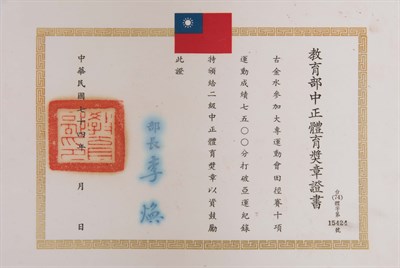 教育部中正體育獎章證書
台(74)體字第15424號
古金水參加大專運動會田徑賽十項
運動成績七五〇〇分打破亞運紀錄
特頒給二級中正體育獎章以資鼓勵
此證
部長李煥
中華民國七十四年 月 日